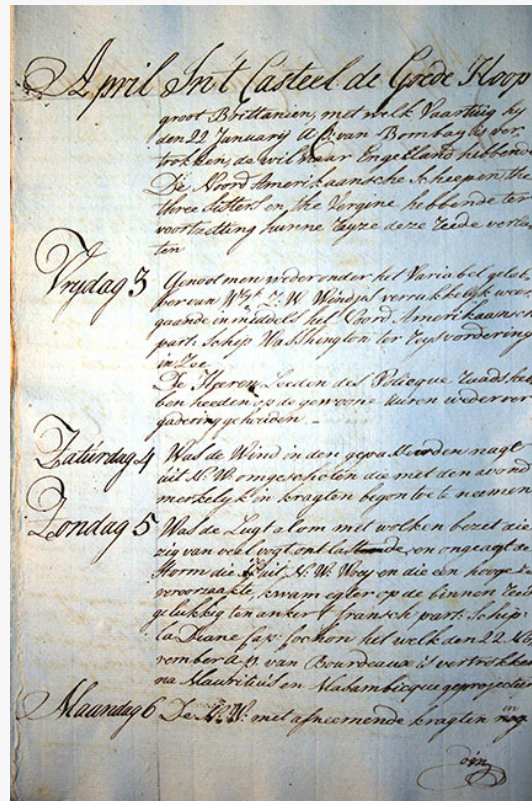 April In't Casteel de Goede Hoop
groot Brittanien, met welk Vaartuig hy
den 22 Januarij A: P: van Bombay is ver„
trokken, da wil naar Engeland hebbende
De Noord Amerikaansche Scheepen the
three Sisters en the Vergine hebbende ter
voortzetting hunne Reyze deze Reede verla„
ten
Vrydag 3 Genoot men weder onder het Variabel
van W. Z. W. Windjes verrukkelyk weer,
gaande inmiddels het Noord Amerikaansch
part: Schip Washington ter Reysvordering
in Zee
De Heeren Leeden des Policque Raads heb
ben heeden op de gewoone Uuren weder ver„
gadering gehouden. –
Zaturdag 4 Was de Wind in den gepasseerden nagt
uit N: W. omgeschoten die met den avond
merkelyk in kragten begon toe te neemen
Zondag 5 Was de Lugt alom met wolken bezet die
zig van veel vogt ontlastende, en ongeagt de
Storm die uit N: W. Woey en die een hooge Zee
veroorzaakte, kwam egter op de binnen Reede
gelukkig ten anker 't fransch part: Schip
la Diane Cap: Cochon het welk den 22 No„
vember A: P: van Bourdeaux is vertrokken
na Mauritius en Mozambicque geprojecteer
Maandag 6 De N: W: met afneemende kragten nog